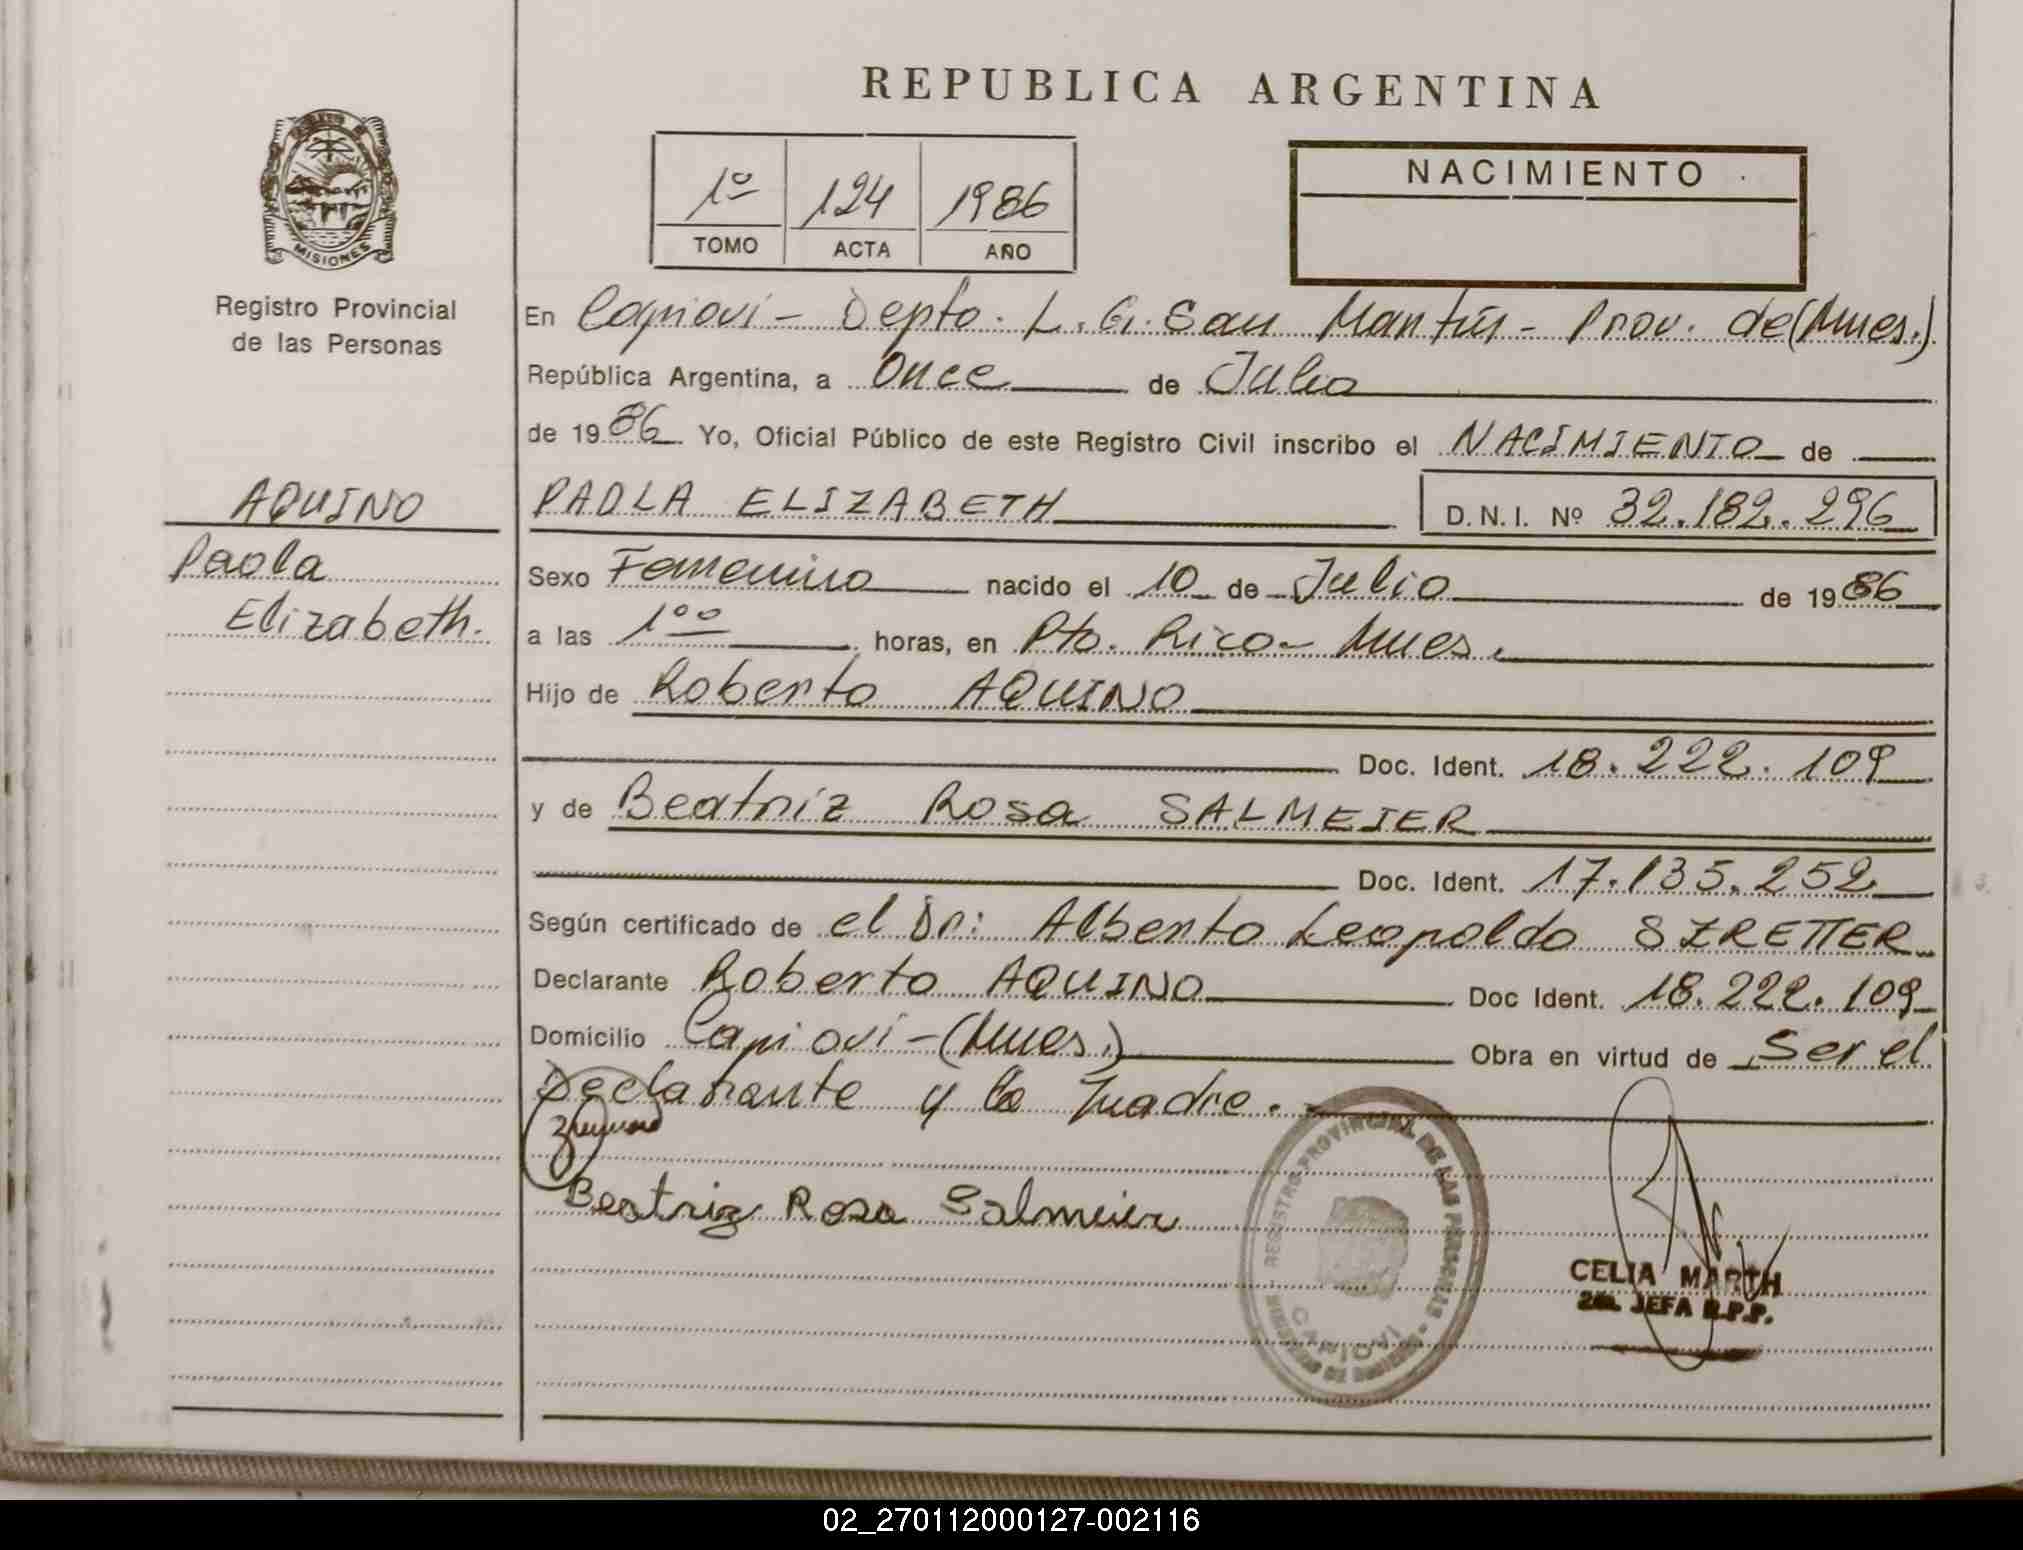 REPUBLICA ARGENTINA
1º 124 1986
TOMO ACTA AÑO
NACIMIENTO
MISIONES
Registro Provincial
de las Personas
En Capioví - Depto. L. G. San Martín - Prov. de (Mnes.)
República Argentina, a Once de Julio
de 1986 Yo, Oficial Público de este Registro Civil inscribo el NACIMIENTO de
AQUINO
Paola
Elizabeth.
PAOLA ELIZABETH D.N.I. Nº 32.182.296
Sexo Femenino nacido el 10 de Julio de 1986
a las 1ºº horas, en Pto. Rico - Mnes.
Hijo de Roberto AQUINO
Doc. Ident. 18.222.109
y de Beatriz Rosa SALMEIER
Doc. Ident. 17.135.252
Según certificado de el Dr: Alberto Leopoldo SZRETTER
Declarante Roberto AQUINO Doc Ident. 18.222.109
Domicilio Capioví - (Mnes.) Obra en virtud de Ser el
Declarante y la madre.
Beatriz Rosa Salmeier
REGISTRO PROVINCIAL DE LAS PERSONAS
CAPIOVI
CELIA MARTH
2da. JEFA R.P.P.
02_270112000127-002116